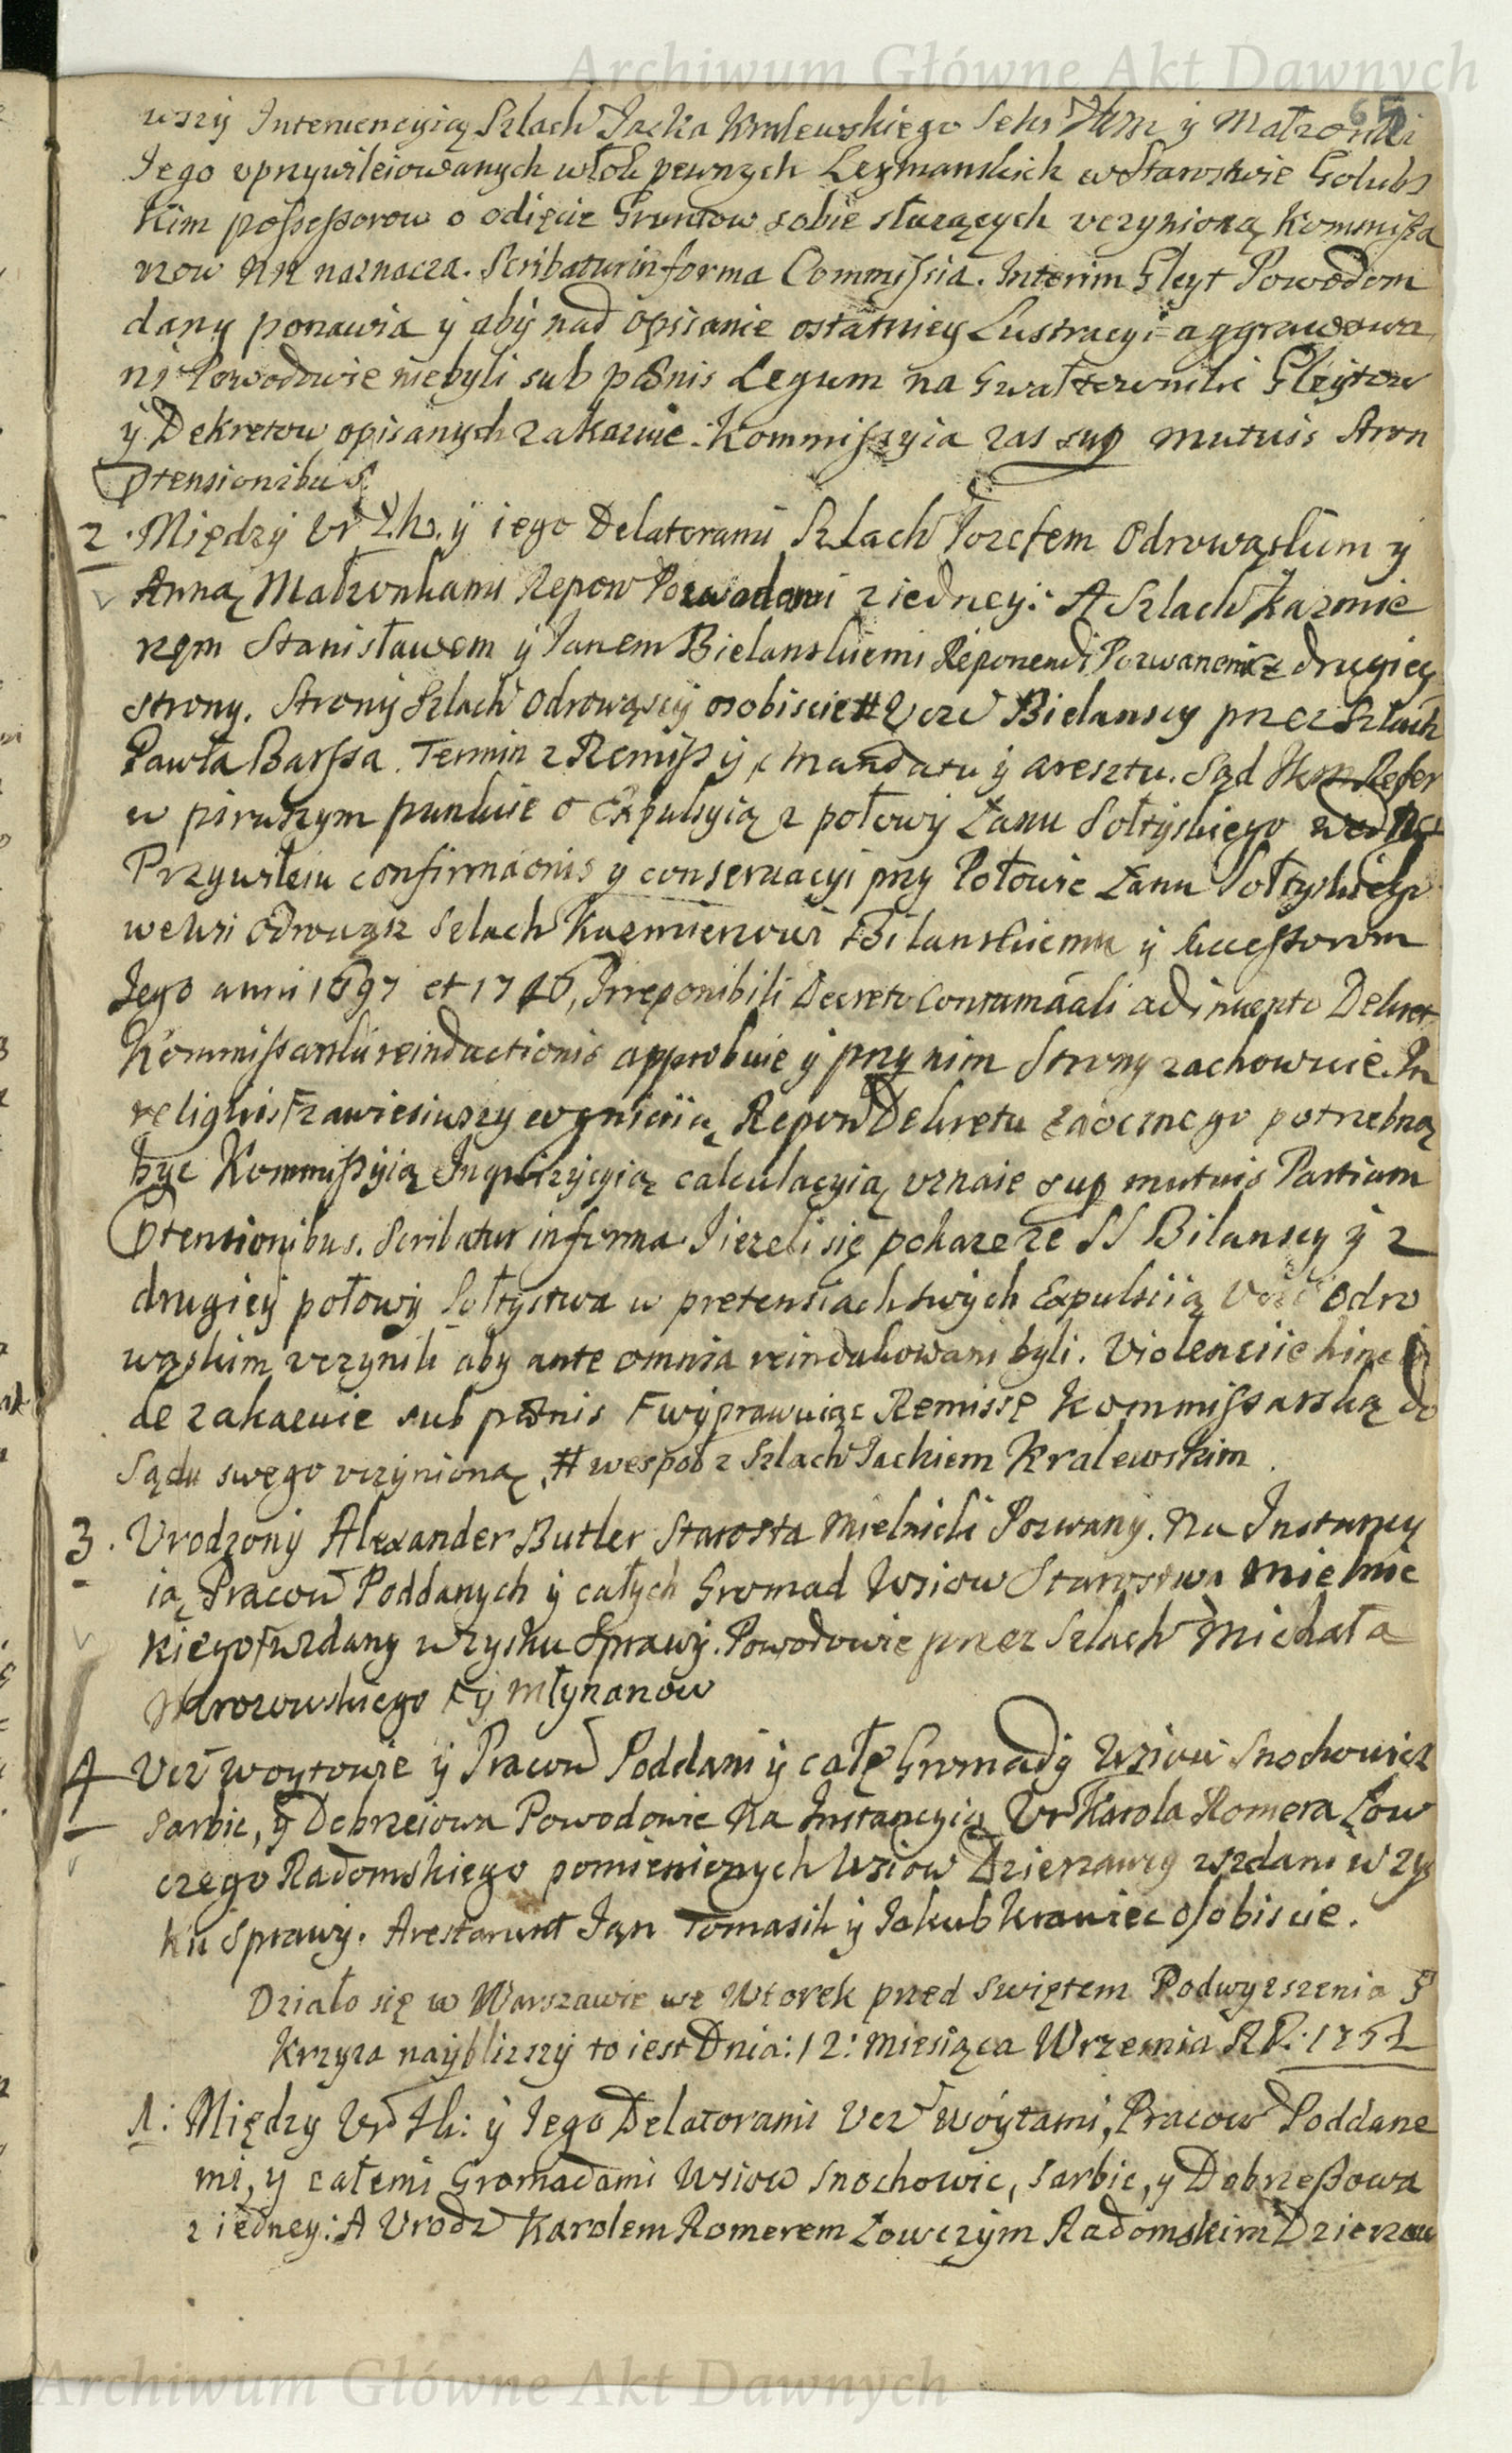 Archiwum Główne Akt Dawnych
65
wszy Interuencyią Szlach Jacka Kralewskiego Sekr JKM y Małzonki
Jego vprzywileiowanych włok pewnych Lezmanskich w Starostwie Golubs
kim possessorow o odięcie Gruntow sobie słuzących vczynioną Kommissa
rzow NN naznacza. Scribatur in forma Commissia. Interim Gleyt Powodom
dany ponawia y aby nad opisanie ostatniey Lustracyi aggrawowa
ni Powodowie niebyli sub pœnis Legum na Gwałtownikow Gleytow
y Dekretow opisanych zakazuie. Kommissyia zas sup mutuis Stron
Ptensionibus
2. Między Vr Ik. y iego Delatorami Szlach Jozefem Odrowąskim y
Anną Małzonkami Repon Powodami z iedney: A Szlach Kazmie
rzem Stanisławem y Janem Bielanskiemi Reponendi Pozwanemi z drugiey
strony. Strony Szlach Odrowąscy osobiscie # Vcz Bielanscy przez Szlach
Pawła Barssa. Termin z Remissy, Mandatu y aresztu. Sąd JKM Refer
w pirwszym punkcie o Expulsyią z połowy Łanu Sołtyskiego według
Przywileiu confirmaonis y conseruacyi przy Połowie Łanu Sołtyskiego
we wsi Odrowąz Szlach Kazmierzowi Bilanskiemu y Succestorom
Jego anni 1697 et 1746, Irreponibili Decreto Contumaali adinuento Dekret
Kommissarski reinductionis approbuie y przy nim Strony zachowuie. In
reliquis F zawiesiwszy ewynicią Repon Dekretu zaocznego potrzebną
byc Kommissyią Inquizycyią calculacyią vznaie sup mutuis Partium
Ptensionibus. Scribatur in forma. Jiezeli się pokaze ze SS Bilanscy y z
drugiey połowy Sołtystwa w pretensiach swych Expulsią Vcz Odro
wąskim vczynili aby ante omnia reindukowani byli. Violenciie hinc in
de zakazuie sub pœnis F wyprawuiąc Remissę Kommissarską do
Sądu swego vczynioną, # wespoł z Szlach Jackiem Kralewskim
3. Vrodzony Alexander Butler Starosta Mielnicki Pozwany. Na Instancy
ią Pracow Poddanych y całych Gromad Wsiow Starostwa Mielnic
kiego F wzdany w zysku Sprawy. Powodowie przez Szlach Michała
Mrozowskiego F y Młynarzow
4 Vcz Woytowie y Pracow Poddani y całe Gromady Wsiow Snochowicz
Sarbic, y Dobrzeiowa Powodowie Na Instancyią Vr Karola Romera Łow
czego Radomskiego pomienionych Wsiow Dzierzawcy wzdani w zy
ku Sprawy. Arestarunt Jan Tomasik y Jakub Krawiec osobiscie.
Działo się w Warszawie we Wtorek przed Swiętem Podwyzszenia S
Krzyza nayblizszy to iest Dnia: 12: Miesiąca Wrzesnia R P. 1752
1: Między Vr Ik: y Jego Delatorami Vcz Woytami, Pracow Poddane
mi, y całemi Gromadami Wsiow Snochowic, Sarbic, y Dobrzeszowa
z iedney: A Vrodz Karolem Romerem Łowczym Radomskim Dzierzaw
Archiwum Główne Akt Dawnych